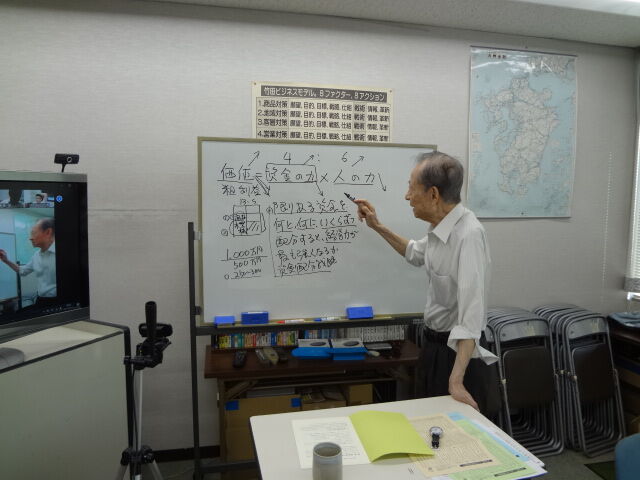 竹田ビジネスモデル。8ファクター、8アクション
1.商品対策 願望,目的,目標,戦略,仕組 戦術 情報,革新
2.地域対策 願望,目的,目標,戦略,仕組 戦術 情報,革新
3.客層対策 願望,目的,目標,戦略,仕組 戦術 情報,革新
4.営業対策 願望,目的,目標,戦略,仕組 戦術 情報,革新
4 : 6
価値=資金の力×人の力
粗利益
限りある資金を
何と、何に、いくらずつ
配分すると、経営力が
最も強くなるか
資金配分戦略
1,000万円
500万円